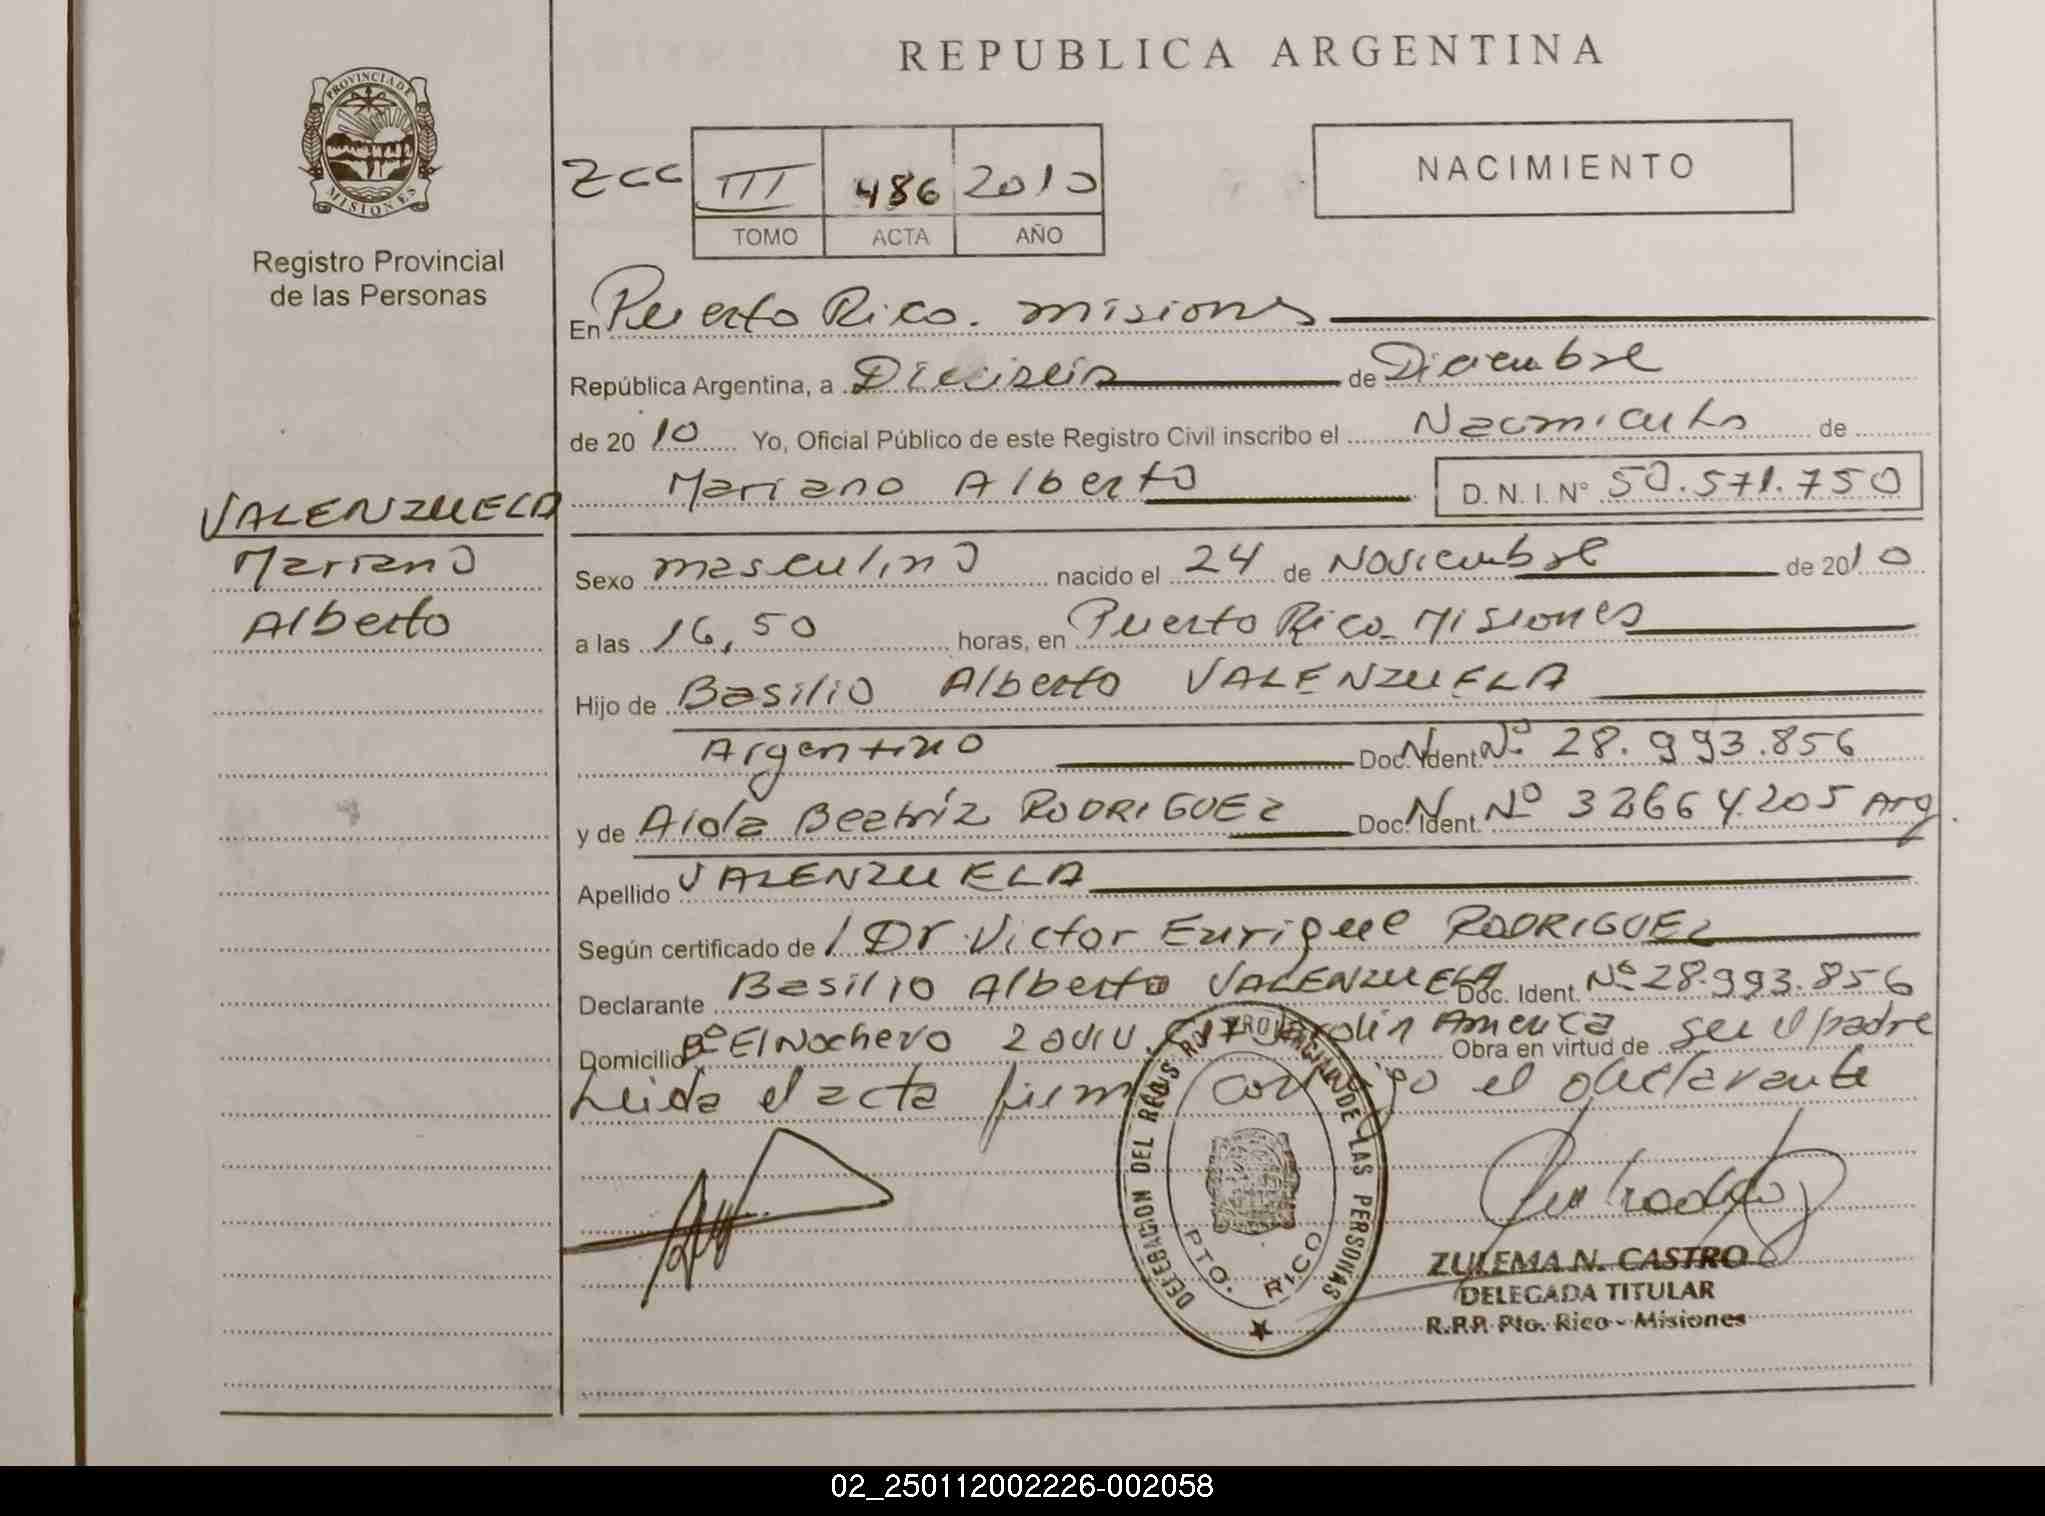 REPUBLICA ARGENTINA
PROVINCIA DE MISIONES
Registro Provincial
de las Personas
NACIMIENTO
Zcc III 486 2010
TOMO ACTA AÑO
En Puerto Rico. misiones
República Argentina, a Dieciseis de Diciembre
de 2010 Yo, Oficial Público de este Registro Civil inscribo el Nacimiento de
Mariano Alberto D. N. I. Nº 50.571.750
VALENZUELA
Mariano
Alberto
Sexo masculino nacido el 24 de Noviembre de 2010
a las 16,50 horas, en Puerto Rico. Misiones
Hijo de Basilio Alberto VALENZUELA
Argentino Doc. Ident. Nº 28.993.856
y de Aida Beatriz RODRIGUEZ Doc. Ident. Nº Arg.
Apellido VALENZUELA
Según certificado de Dr. Victor Enrique RODRIGUEZ
Declarante Basilio Alberto VALENZUELA Doc. Ident. Nº 28.993.856
Domicilio Bº El Nochero Jardin America Obra en virtud de ser el padre
Leida el acta firma conmigo el declarante
DELEGACION DEL REGISTRO PROVINCIAL DE LAS PERSONAS
PTO. RICO
ZULEMA N. CASTRO
DELEGADA TITULAR
R.P.P. Pto. Rico - Misiones
02_250112002226-002058